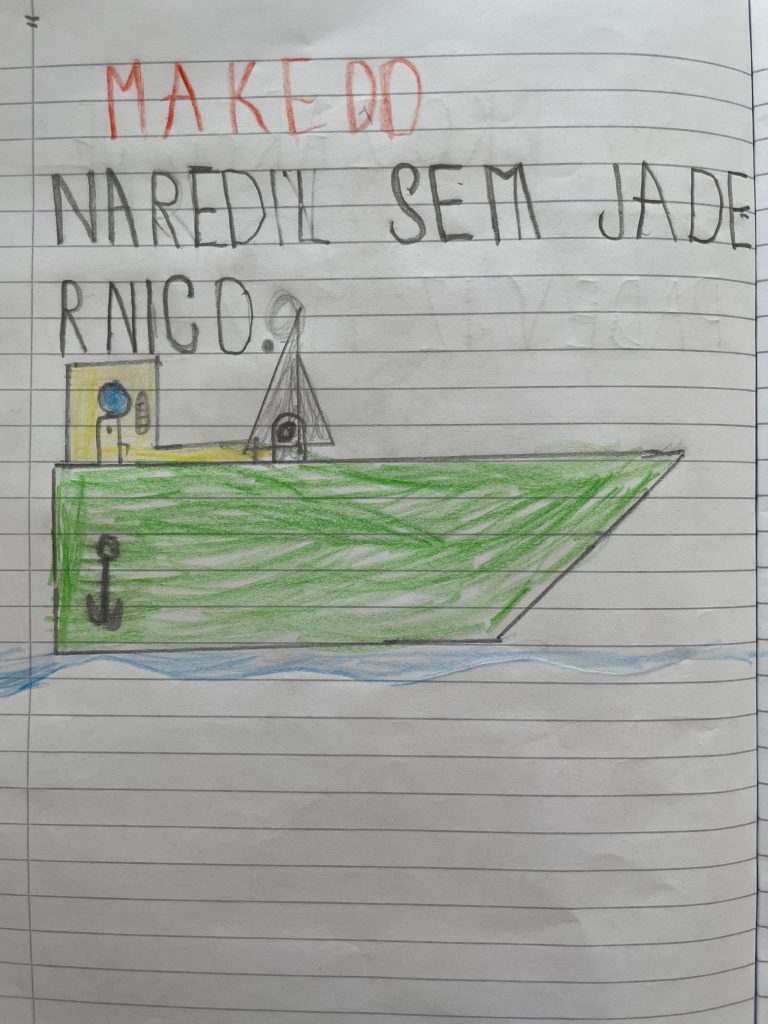 MAKEDO
NAREDIL SEM JADE
RNICO.